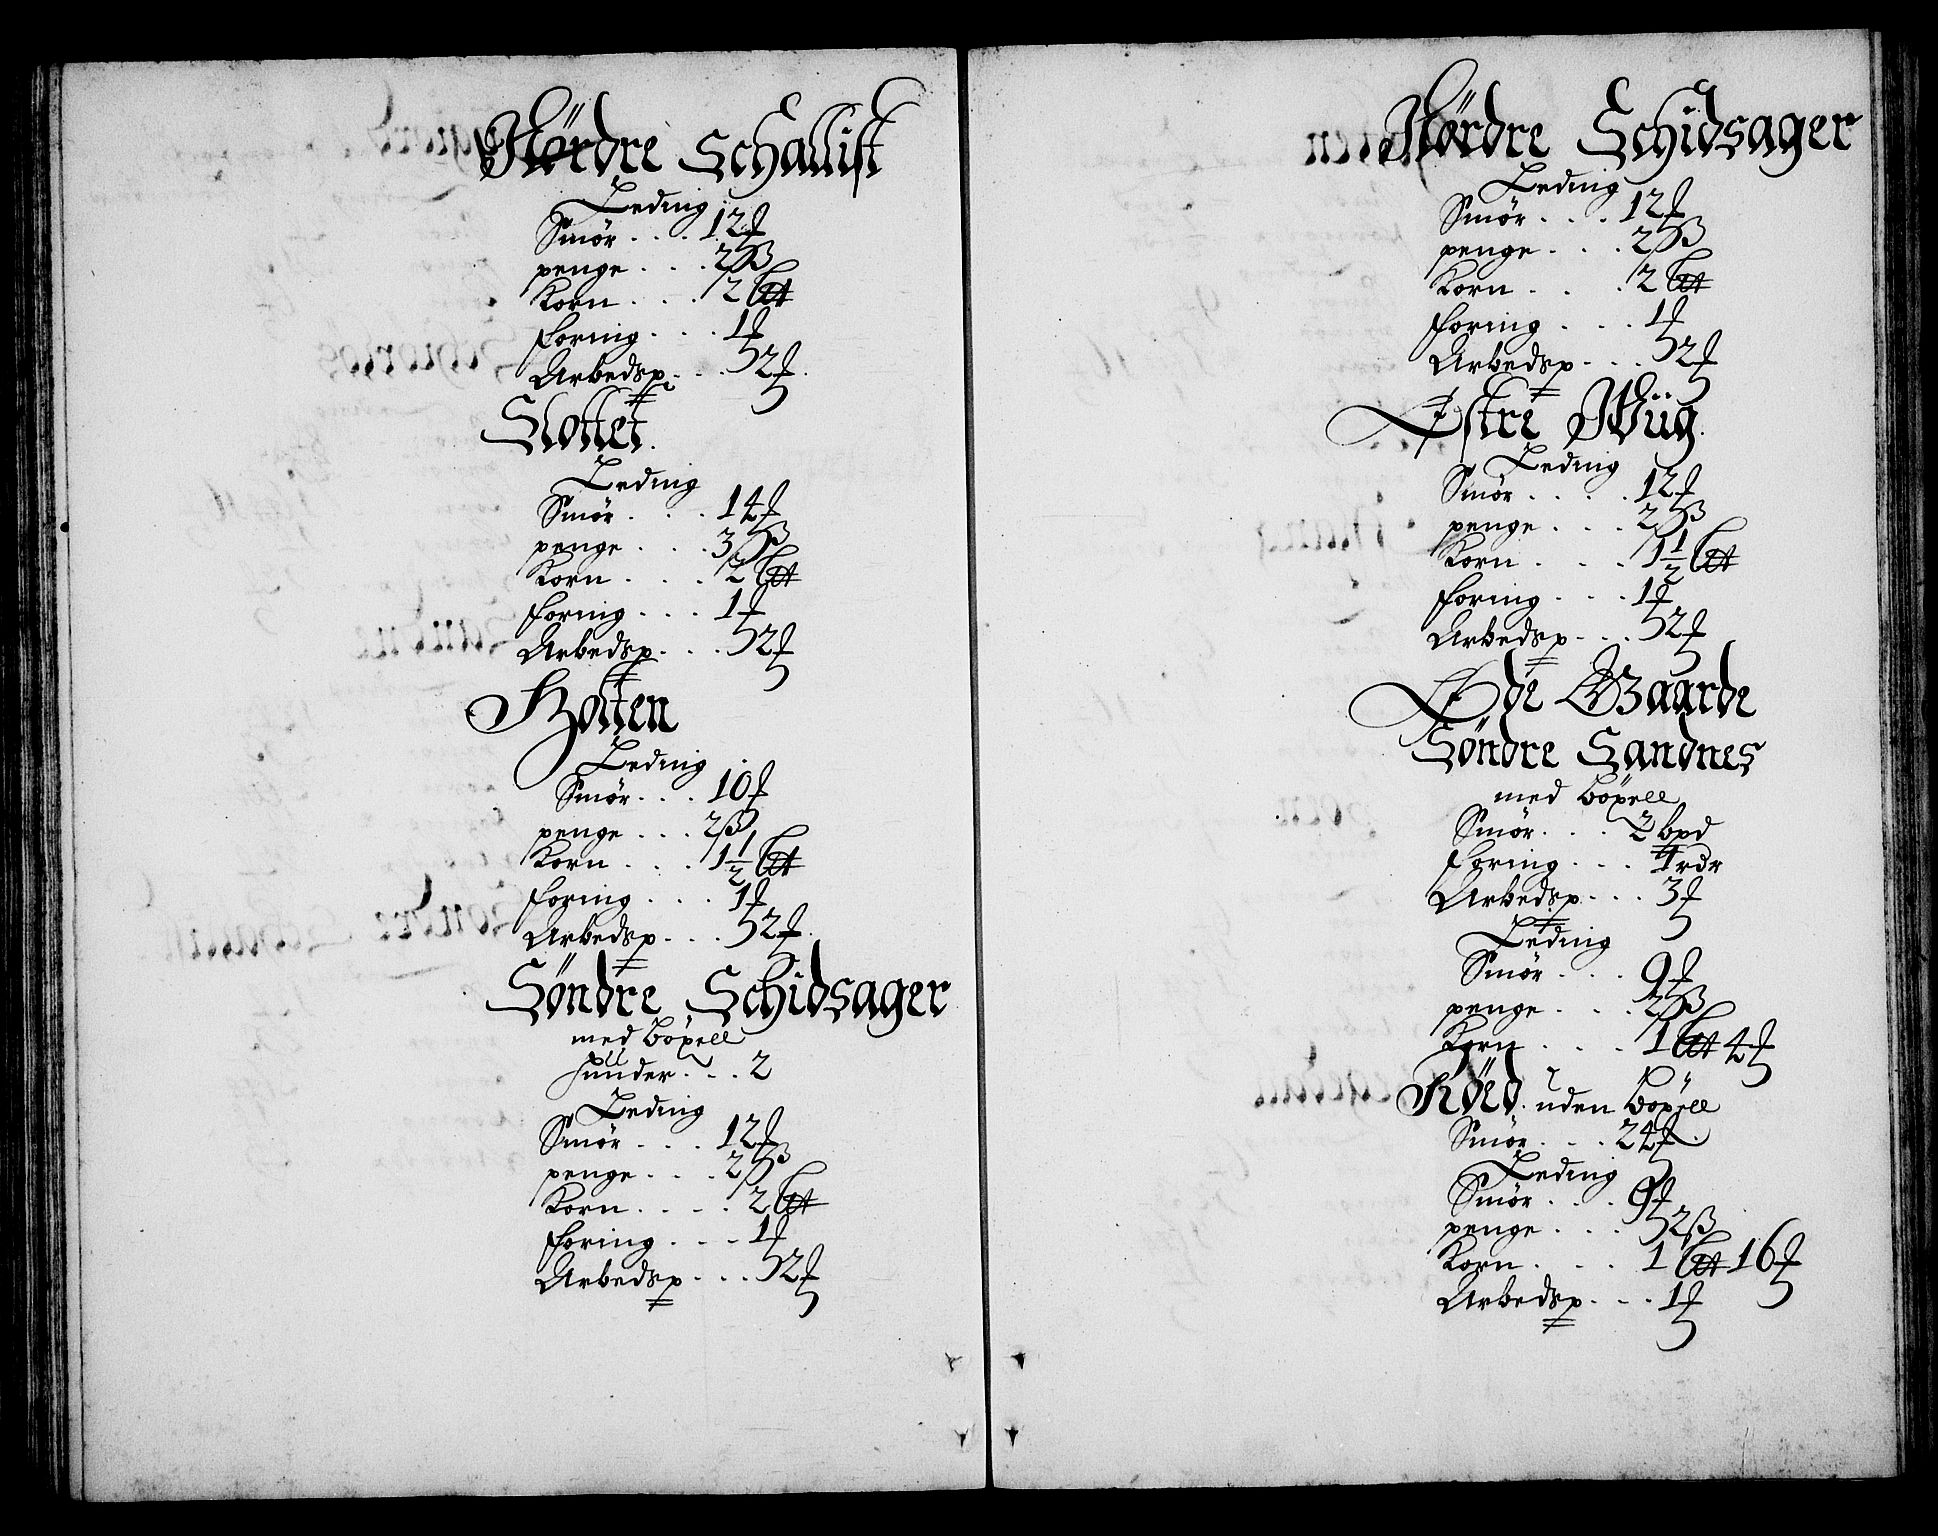 Nördre Schallist
Leding
Smör . . . 12 ℔
penge . . . 2 ß
Korn . . . 2 lett
foring . . . 1 ℔
Arbedsp . . . 2 ℔
Slottet
Leding
Smör . . . 14 ℔
penge . . . 3 ß
Korn . . . 2 lett
foring . . . 1 ℔
Arbedsp . . . 2 ℔
Holten
Leding
Smör . . . 10 ℔
penge . . . 2 ß
Korn . . . 1½ lett
foring . . . 1 ℔
Arbedsp . . . 2 ℔
Söndre Schidsager
med böxell
huder . . . 2
Leding
Smör . . . 12 ℔
penge . . . 2 ß
Korn . . . 2 lett
foring . . . 1 ℔
Arbedsp . . . 2 ℔
Nördre Schidsager
Leding
Smör . . . 12 ℔
penge . . . 2 ß
Korn . . . 2 lett
foring . . . 1 ℔
Arbedsp . . . 2 ℔
Østre Wiig
Leding
Smör . . . 12 ℔
penge . . . 2 ß
Korn . . . 1½ lett
foring . . . 1 ℔
Arbedsp . . . 2 ℔
Øde Gaarde
Söndre Sandnes
med böxell
Smör . . . 2 bpd
foring . . . 1 rdr
Arbedsp . . . 3 ℔
Leding
Smör . . . 9 ℔
penge . . . 2 ß
Korn . . . 1 lett 4 ℔
Röed uden böxell
Smör . . . 24 ℔
Leding
Smör . . . 9 ℔
penge . . . 2 ß
Korn . . . 1 lett 16 ℔
Arbedsp . . . 1 ℔